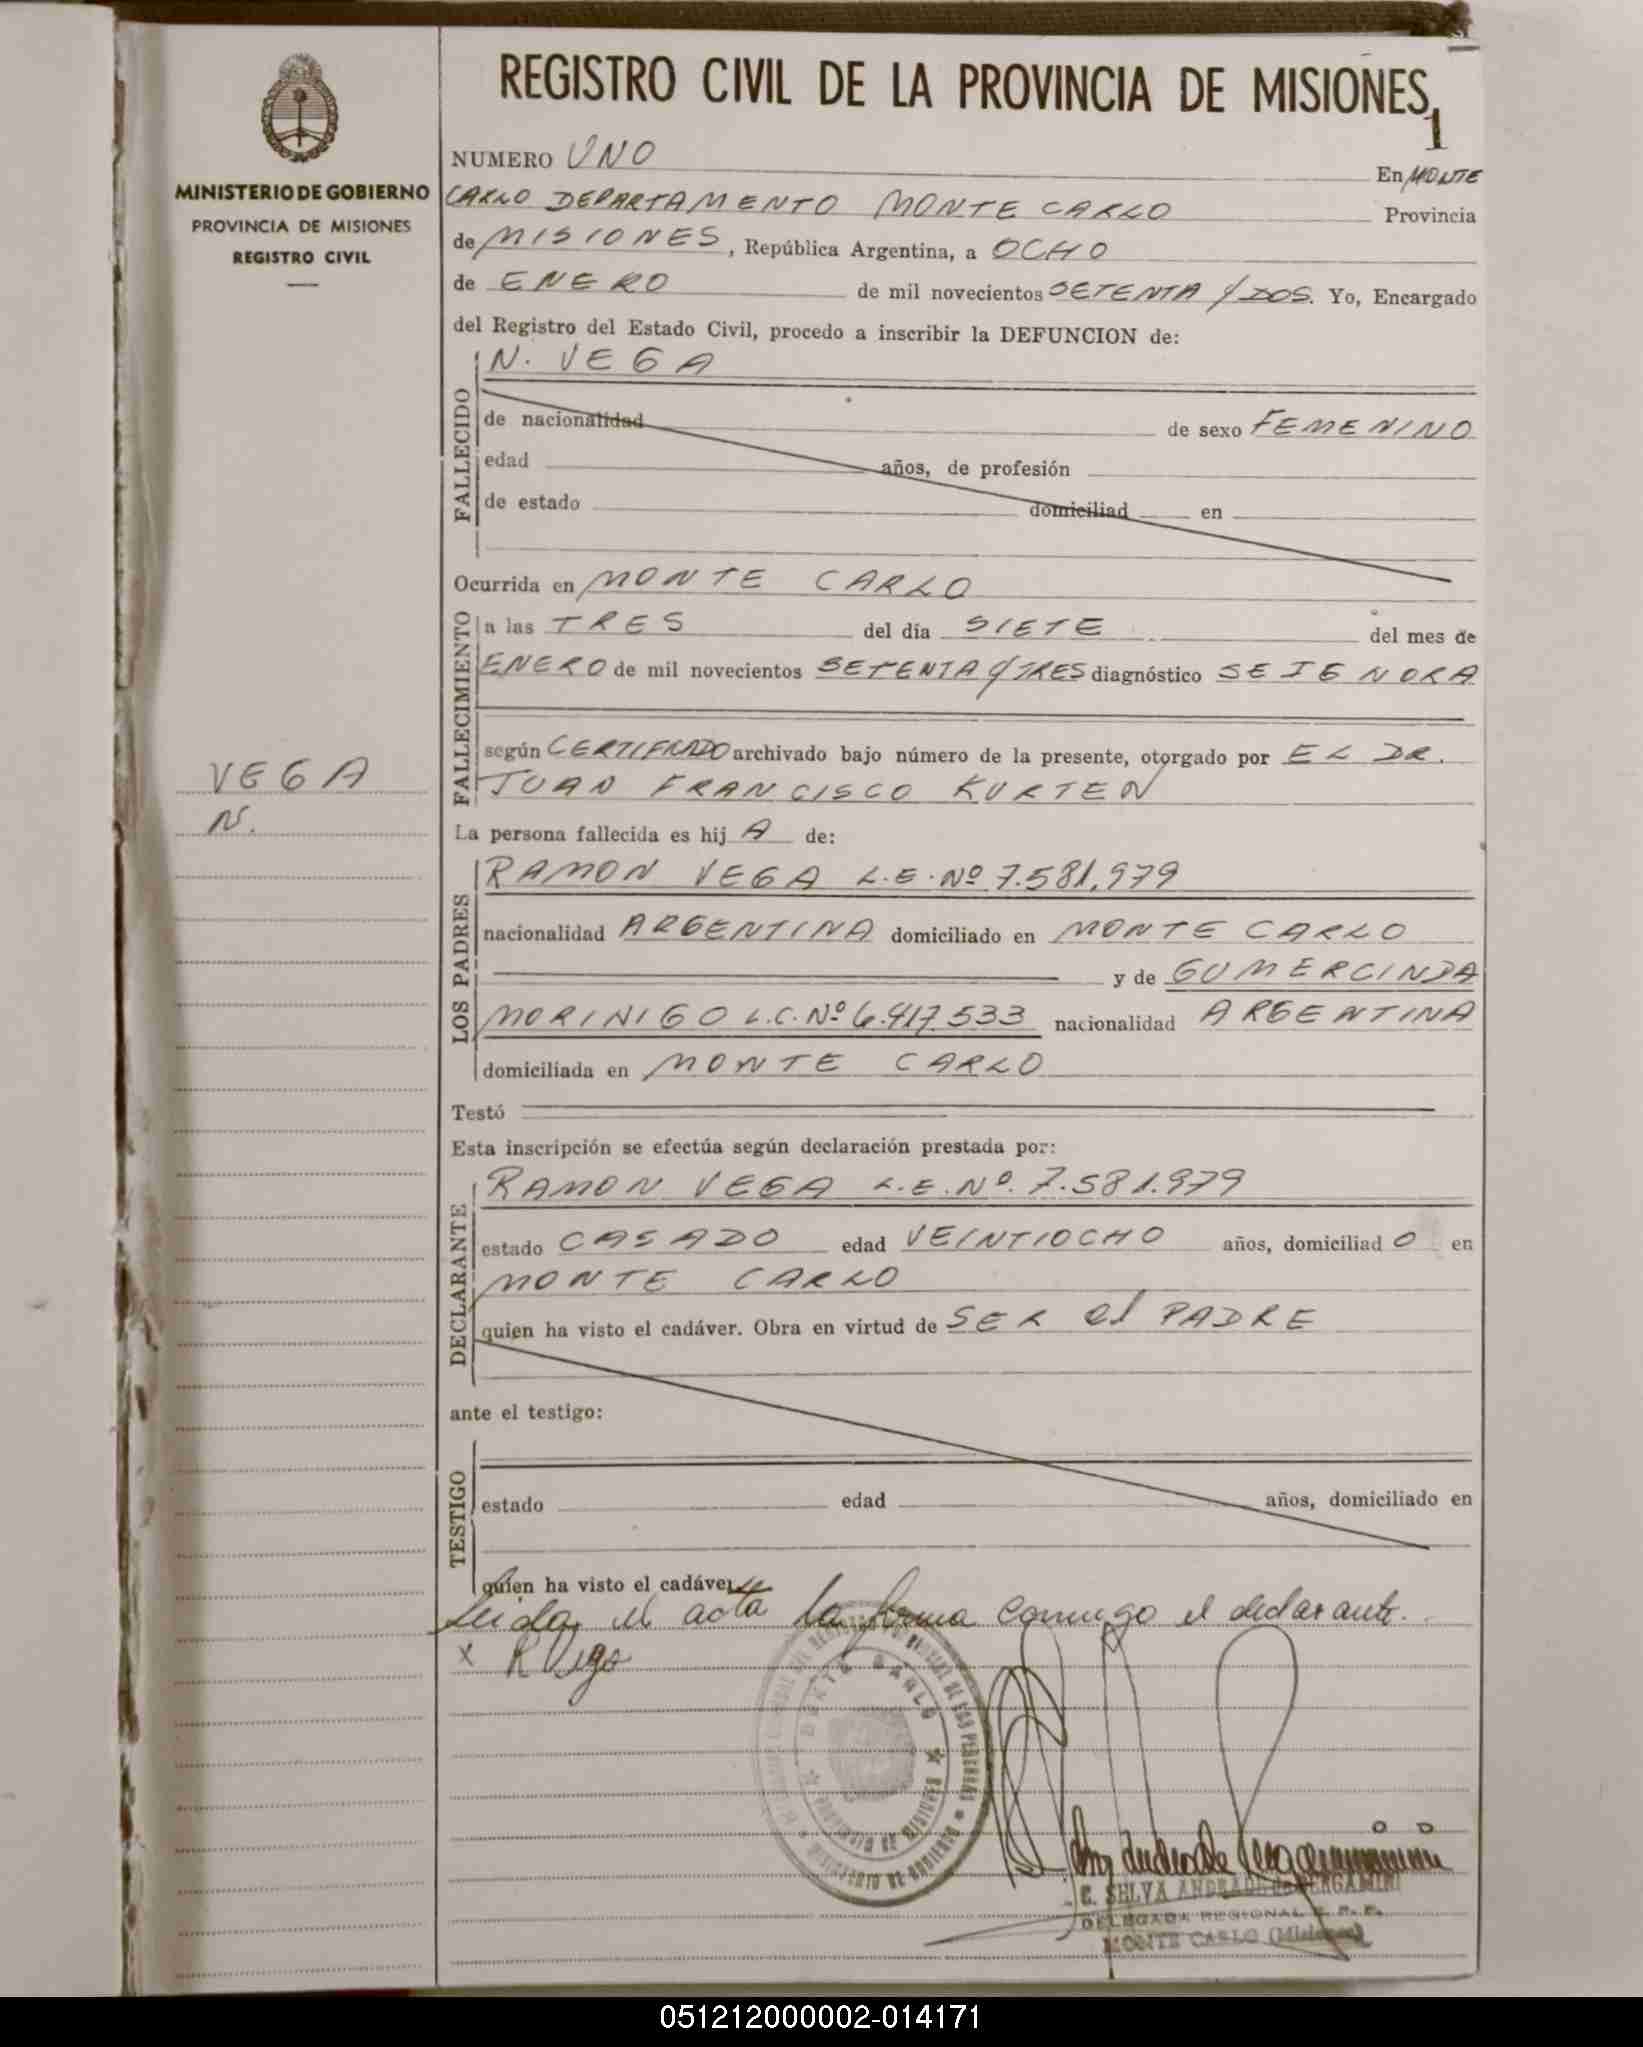 REGISTRO CIVIL DE LA PROVINCIA DE MISIONES
1
MINISTERIO DE GOBIERNO
PROVINCIA DE MISIONES
REGISTRO CIVIL
VEGA
N.
NUMERO UNO En MONTE
CARLO DEPARTAMENTO MONTE CARLO Provincia
de MISIONES, República Argentina, a OCHO
de ENERO de mil novecientos SETENTA Y DOS. Yo, Encargado
del Registro del Estado Civil, procedo a inscribir la DEFUNCION de:
N. VEGA
FALLECIDO
de nacionalidad de sexo FEMENINO
edad años, de profesión
de estado domiciliad en
Ocurrida en MONTE CARLO
FALLECIMIENTO
a las TRES del día SIETE del mes de
ENERO de mil novecientos SETENTA Y TRES diagnóstico SE IGNORA
según CERTIFICADO archivado bajo número de la presente, otorgado por EL DR.
JUAN FRANCISCO KURTEN
La persona fallecida es hij A de:
LOS PADRES
RAMON VEGA L.E.Nº 7.581.979
nacionalidad ARGENTINA domiciliado en MONTE CARLO
y de GUMERCINDA
MORINIGO L.C.Nº 6.417.533 nacionalidad ARGENTINA
domiciliada en MONTE CARLO
Testó
Esta inscripción se efectúa según declaración prestada por:
DECLARANTE
RAMON VEGA L.E.Nº. 7.581.979
estado CASADO edad VEINTIOCHO años, domiciliad O en
MONTE CARLO
quien ha visto el cadáver. Obra en virtud de SER el PADRE
ante el testigo:
TESTIGO
estado edad años, domiciliado en
quien ha visto el cadáver
Leida el acta la firma conmigo el declarante.
x R Vega
MONTE CARLO
PROVINCIA DE MISIONES
MINISTERIO DE GOBIERNO
C. SELVA ANDRADE DE BERGAMINI
DELEGADA REGIONAL R. P. P.
MONTE CARLO (Misiones)
051212000002-014171